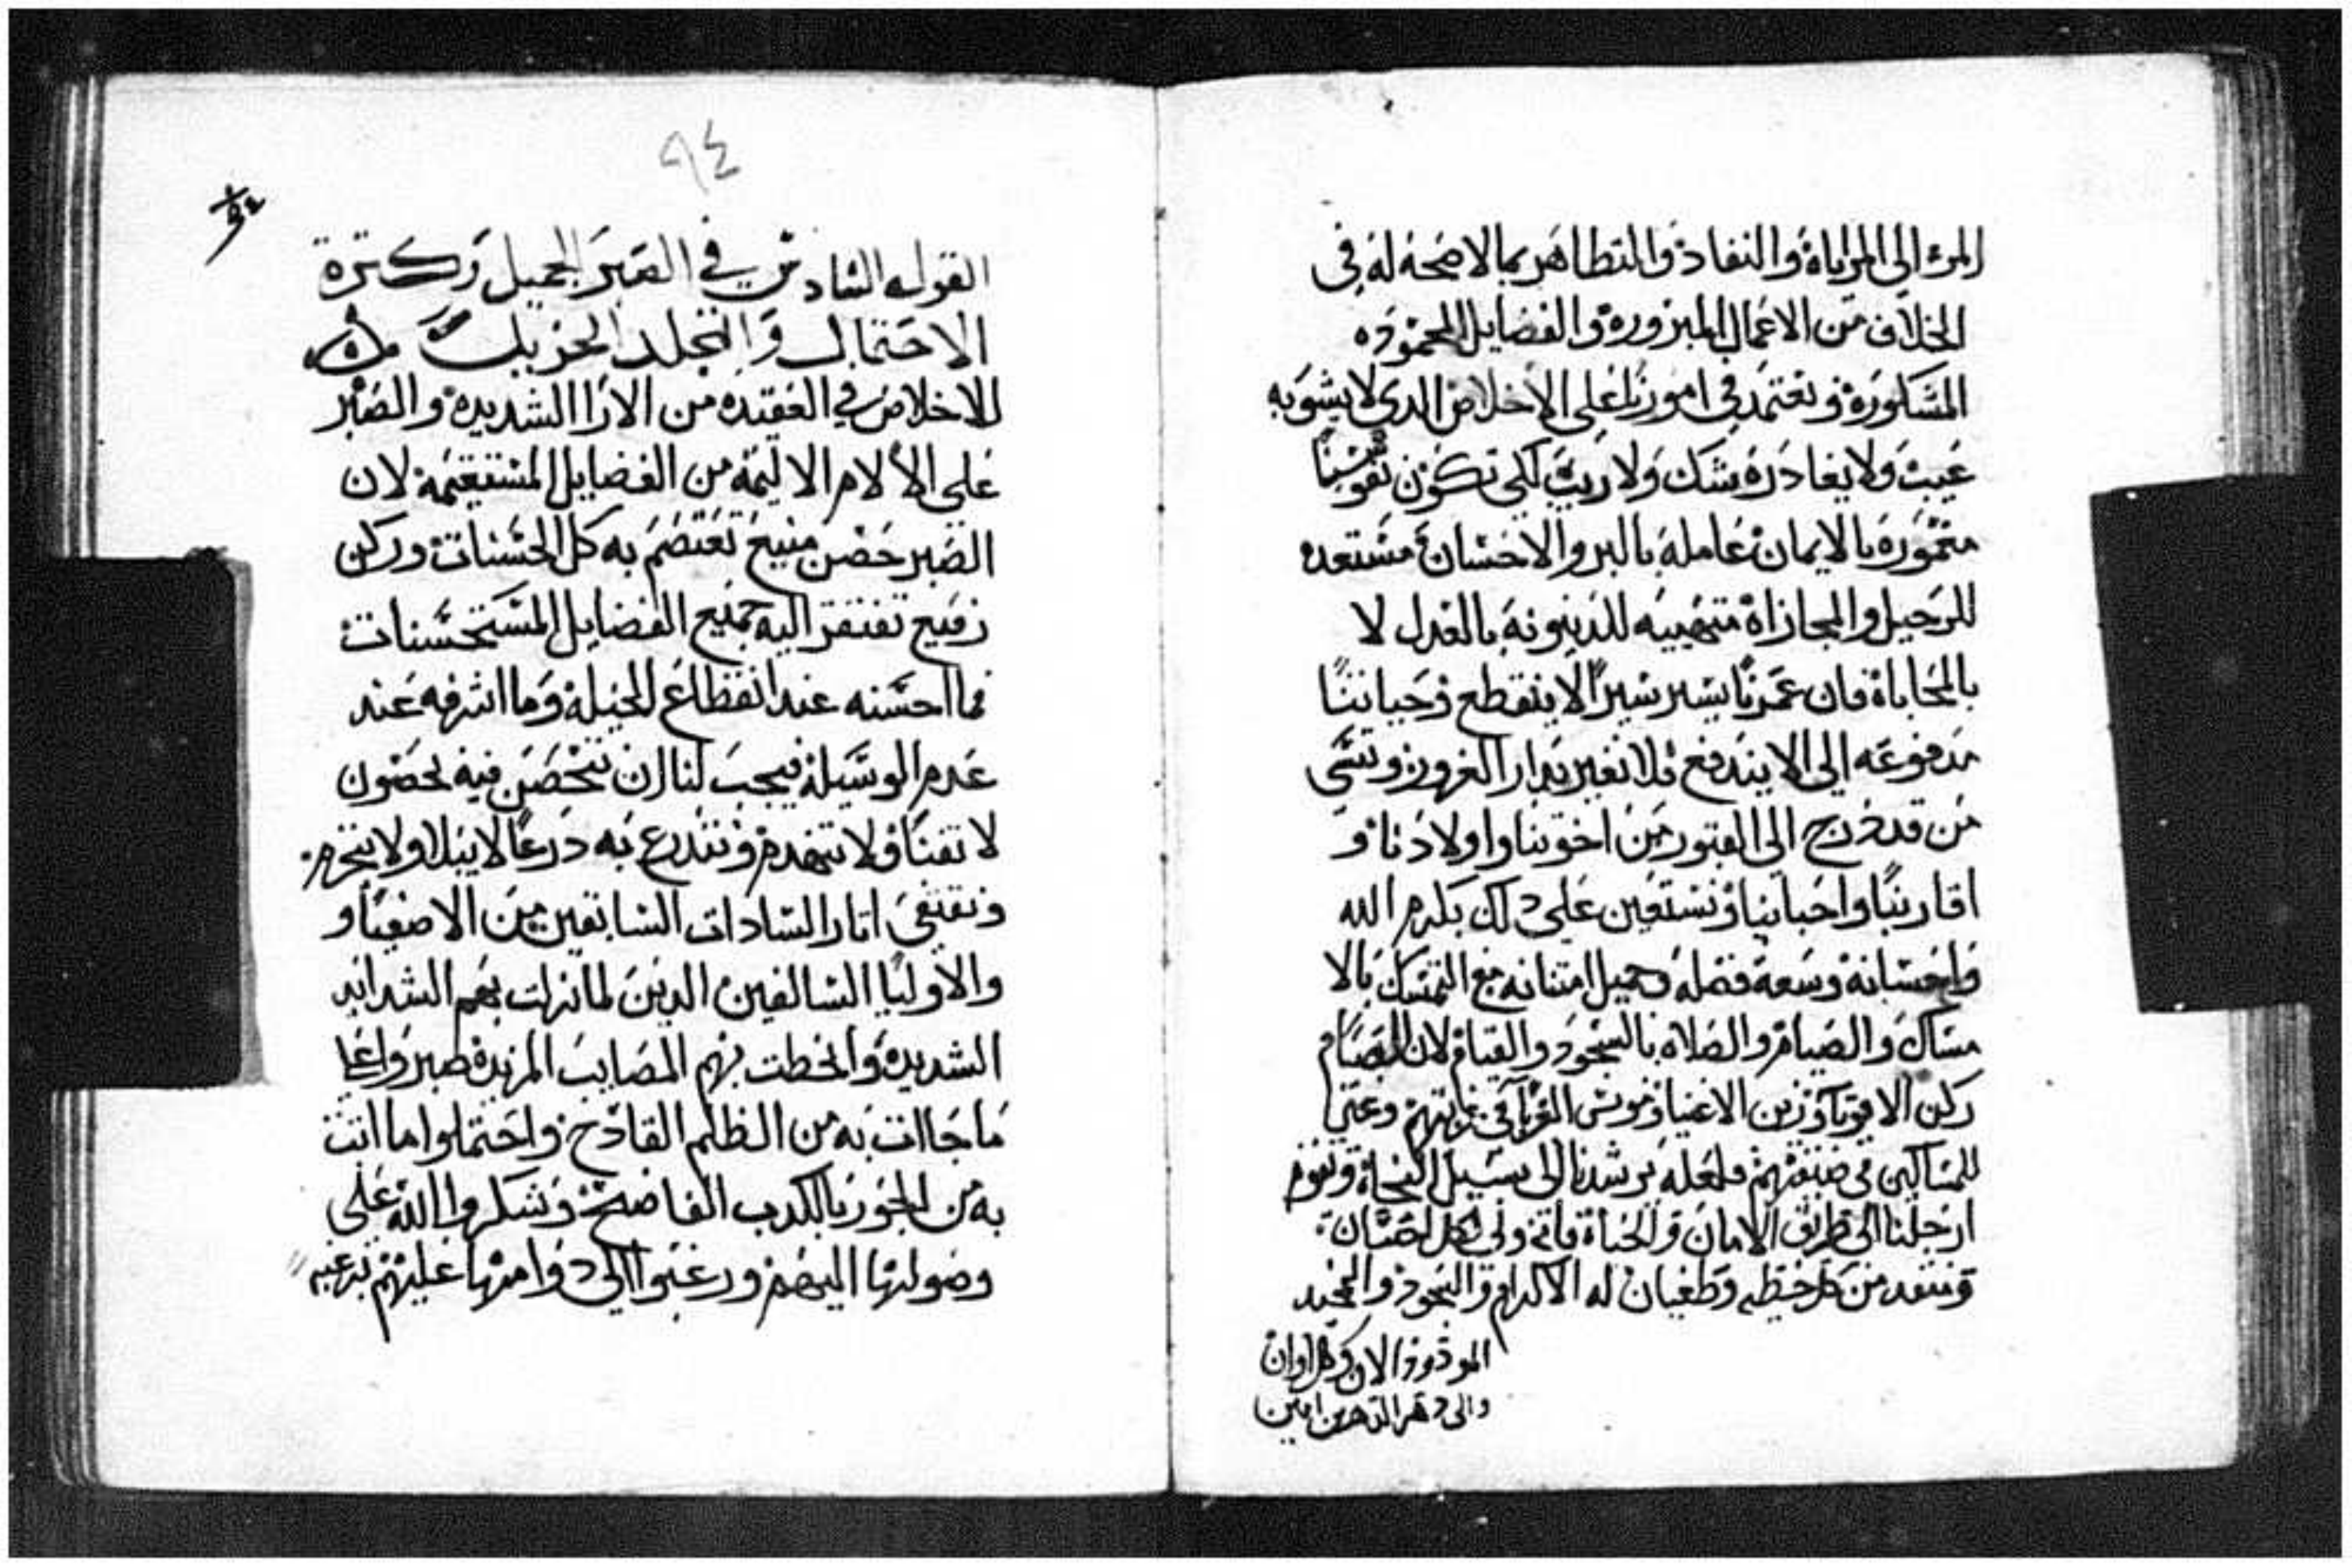 المرء الى المراياة والنفاد والتظاهر بما لا صحة له في
الخلاف من الاعمال المبرورة والفضايل المحموده
المشكورة ونعتمد في امورنا على الاخلاص الدي لا يشوبه
عيب ولا يغادره شك ولا ريب لكي تكون نفوسنا
معمورة بالايمان عاملة بالبر والاحسان مستعده
للرحيل والمجازاة متهييه للدينونة بالعدل لا
بالمحاباة فان عمرنا يسير سيرا لا ينقطع وحياتنا
مدفوعه الى الا يندفع فلا نغير بدار الغرور وننسى
من قد خرج الى القبور من اخوتنا واولادنا و
اقاربنا واحباينا ونستعين على دلك بكرم الله
واحسانه وسعة فضله وجميل امتنانه مع التمسك بالا
مساك والصيام والصلاه بالسجود والقيام لان الصيام
ركن الاقويا وزين الاغنيا ومونس الغربا في غربتهم وغنى
للمساكين في ضيقتهم فلعله يرشدنا الى سبيل النجاة وتقوم
ارجلنا الى طريق الامان والحياة فانه ولي كل احسان
وننقد من كل خطيه وطغيان له الاكرام والسجود والمجد
الموفور الان وكل اوان
والى دهر الداهرين امين
٩٤
القول السادس في الصبر الجميل وكترة
الاحتمال والتجلد الجزيل
للاخلاص في العقيده من الارا الشديدة والصبر
على الالام الاليمة من الفضايل المستقيمة لان
الصبر حصن منيع تعتصم به كل الحسنات وركن
رفيع تفتقر اليه جميع الفضايل المستحسنات
فما احسنه عند انقطاع الحيلة وما اشرفه عند
عدم الوسيلة فيجب لنا ان نتحصن فيه بحصون
لا تفنا ولا تنهدم ونتدرع به درعا لا يبلا ولا ينخرم
ونقتفي اتار السادات السابقين من الاصفيا و
والاوليا السالفين الدين لما نزلت بهم الشدايد
الشديدة وانحطت بهم المصايب المزيدة صبروا على
ما جاات به من الظلم القادح واحتملوا ما اتت
به من الجور بالكدب الفاضح وشكروا الله على
وصولها اليهم ورغبوا الى دوامها عليهم برغبه